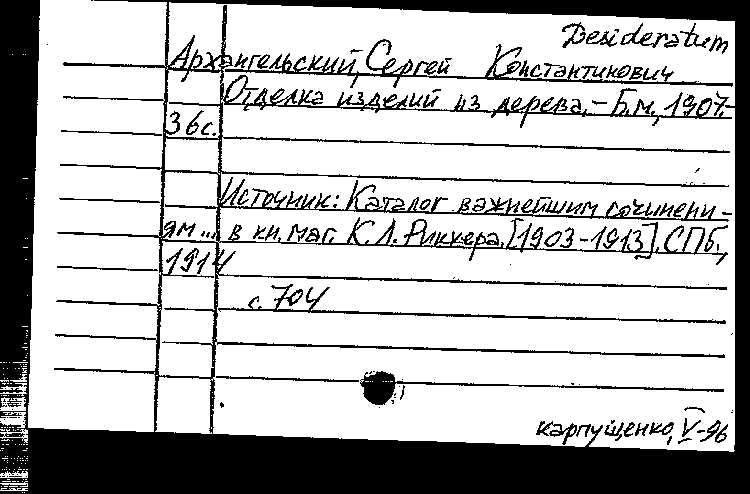 Desideratum
Архангельский, Сергей Константинович
Отделка изделий из дерева. – Б.м., 1907. –
36с.
Источник: Каталог важнейшим сочинени-
ям... в кн. маг. К.Л. Риккера. [1903-1913]. СПб.,
1914
с. 704
Карпущенко, V-96